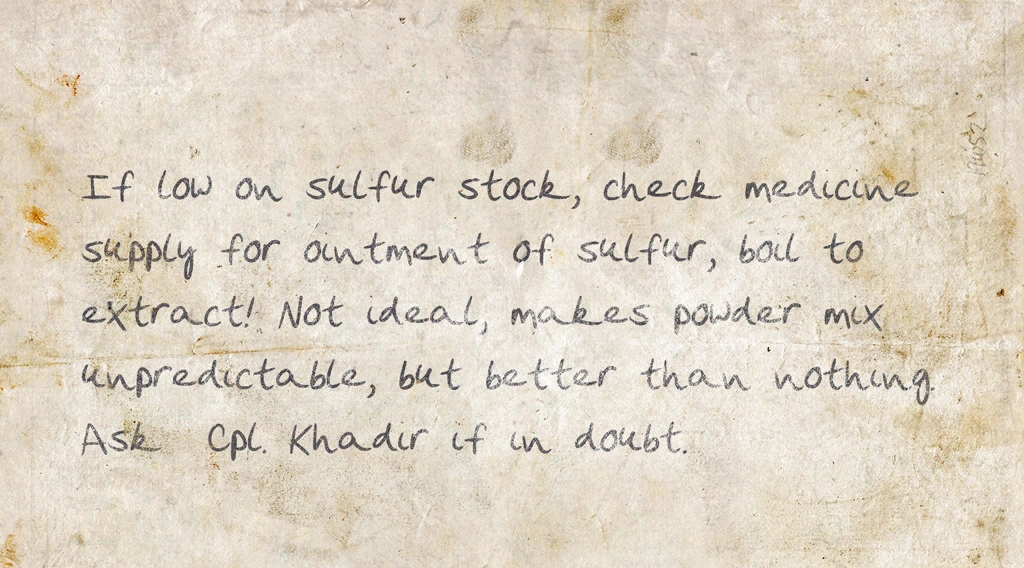 If low on sulfur stock, check medicine
supply for ointment of sulfur, boil to
extract! Not ideal, makes powder mix
unpredictable, but better than nothing.
Ask Cpl. Khadir if in doubt.